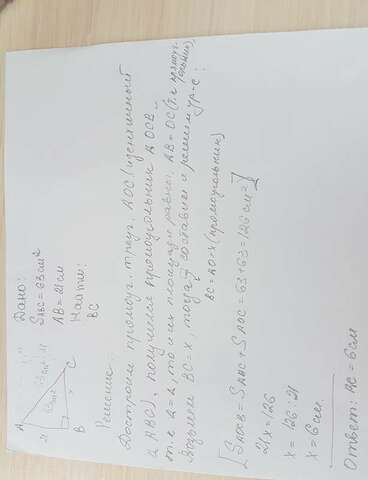 Дано:
S ABC = 63 см²
AB = 21 см
Найти:
BC
A
B
C
21
63 см²
x
Решение:
Достроим прямоуг. треуг. AOC (идентичный
ABC), получится прямоугольник AOCB.
т.е. то и их площади равны, AB = OC (т.к. прямоуг.
Возьмём BC = x, тогда составим и решим ур-е:
BC = AO = x (прямоугольник)
[S AOCB = S ABC + S AOC = 63 + 63 = 126 см²]
21x = 126
x = 126 : 21
x = 6 см.
Ответ: BC = 6 см